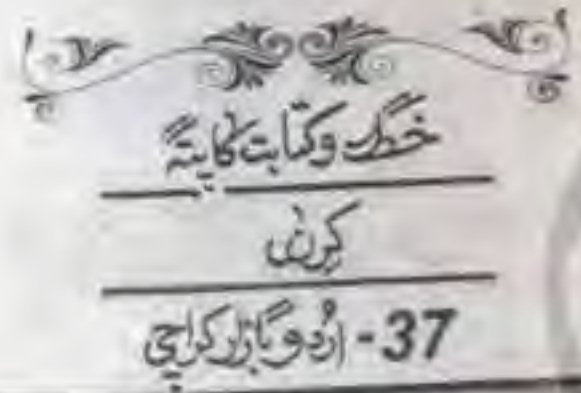 خط و کتابت کا پتہ
کرن
37 - اُردو بازار کراچی